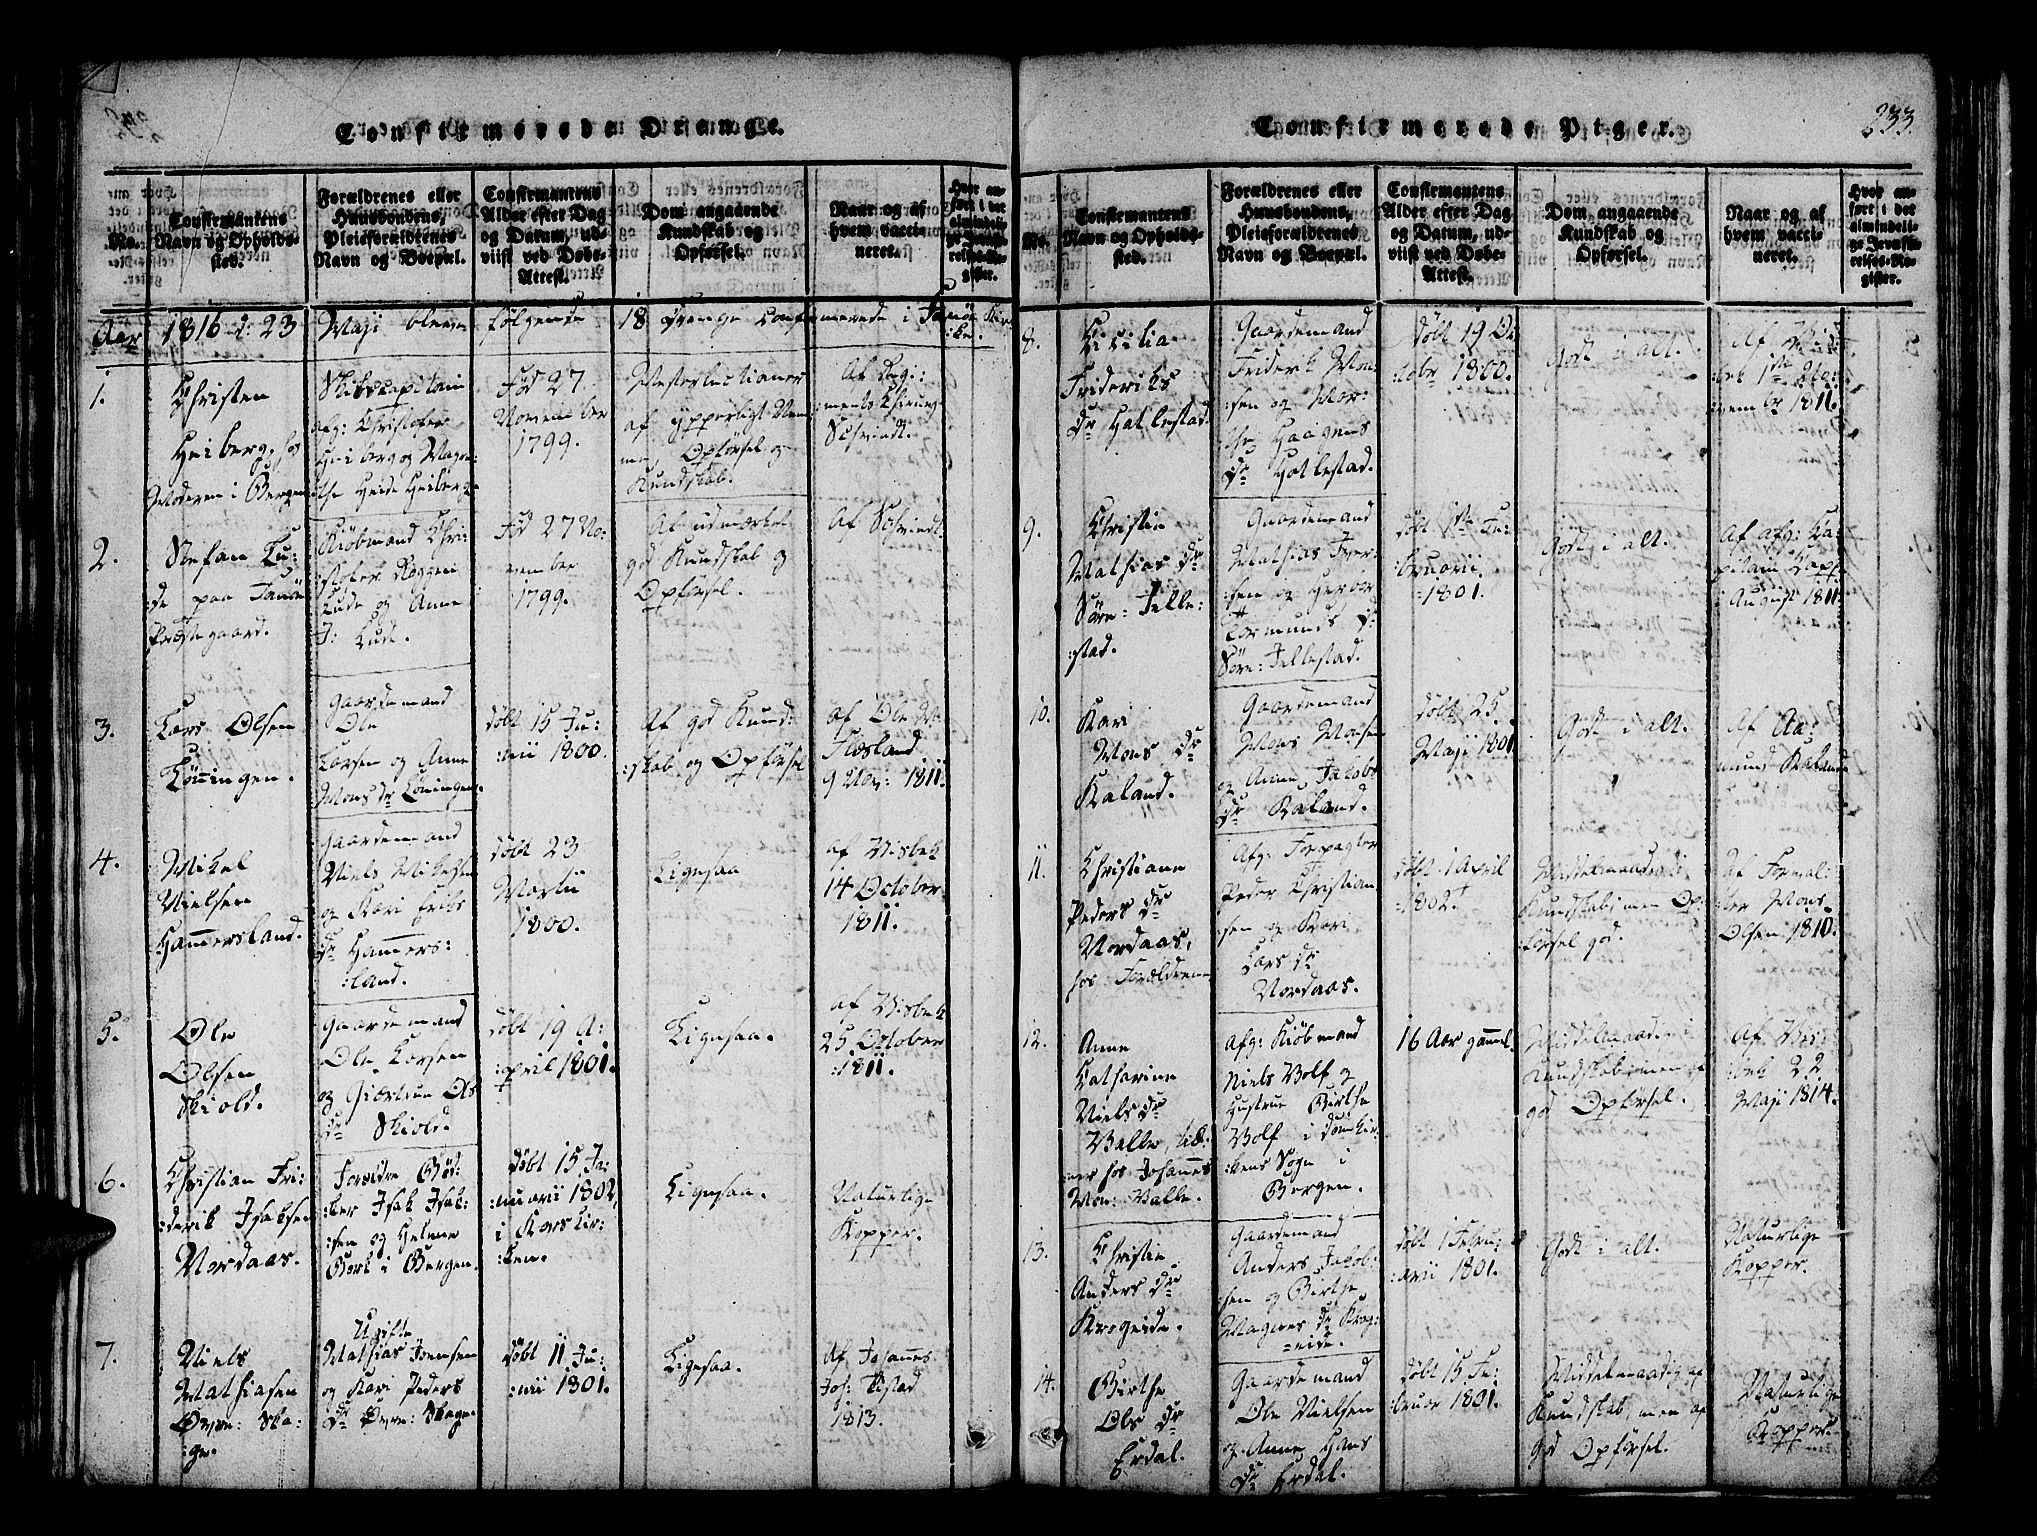 Confirmerede Drenge.
No.
Confirmantens
Navn og Opholds-
sted.
Forældrenes eller
Huusbondens,
Pleieforældrenes
Navn og Boepæl.
Confirmantens
Alder efter Dag
og Datum, ud-
viist ved Døbe-
Attest.
Dom angaaende
Kundskab og
Opførsel.
Naar og af
hvem vacci-
neret.
Hvor an-
ført i det
almindeli-
ge Jevnfø-
relses-Re-
gister.
Aar 1816 d: 23 Maji bleve følgende 18 Drenge confirmerede i Fanøe Kir-
:ke.
1.
Christen
Heiberg, hos
Moderen i Bergen
Skibscapitain
afg: Christofer
Heiberg og Magre:
:the Heide Heiberg
Fød 27
November
1799.
af ypperligt Nem
me, Opførsel og
Kundskab.
Af Regi:
:ments Chirurg
Schwindt.
2.
Stefan Lu:
:de paa Fanøe
Præstegaard.
Kiøbmand Chri:
:stofer Roggen
Lude og Anne
J: Lude.
Fød 27 No:
vember
1799.
Af udmærket
god Kundskab og
Opførsel.
Af Schwindt.
3.
Lars Olsen
Lønningen.
Gaardemand
Ole
Larsen og Anne
Mons dr Løningen.
døbt 15 Ju:
:nii 1800.
Af god Kund:
:skab og Opførsel
af Ole M.
Flæsland
9 Nov: 1811.
4.
Mikel
Nielsen
Hammersland.
Gaardemand
Niels Mikelsen
og Kari Eriks
dr Hammers:
:land.
døbt 23
Martii
1800.
Ligesaa
af Wisbek
14 October
1811.
5.
Ole
Olsen
Skiold.
Gaardemand
Ole Larsen
og Giertrue Ols
dr Skiold.
døbt 19 A:
:pril 1801.
Ligesaa.
af Wisbek
25 October
:1811.
6.
Christian Fri:
:derik Isaksen
Nordaas.
Forældre Bød:
:ker Isak Isak:
:sen og Helene
Bork i Bergen.
døbt 15 Ja:
:nuarii 1802,
i Korskir:
:ken.
Ligesaa.
Naturlige
Kopper.
7.
Niels
Mathiasen
Øvre: Ska:
:ge.
Ugifte
Mathias Joensen
og Kari Peders
dr Øvre: Skage.
døbt 11 Ju:
:nii 1801.
Ligesaa.
Af Johannes
Joh: Tistad
1813.
Confirmerede Piger.
233.
No.
Confirmantens
Navn og Opholds-
sted.
Forældrenes eller
Huusbondens,
Pleieforældrenes
Navn og Boepæl.
Confirmantens
Alder efter Dag
og Datum, ud-
viist ved Døbe-
Attest.
Dom angaaende
Kundskab og
Opførsel.
Naar og af
hvem vacci-
neret.
Hvor an-
ført i det
almindeli-
ge Jevnfø-
relses-Re-
gister.
8.
Cicilia
Frideriks
dr Hatlestad.
Gaardemand
Friderik Mon:
:sen og Mar:
the Haagens
dr Hatlestad.
døbt 19 Oc
:tobr 1800.
Godt i alt.
Af Wis:
:bek 1ste No:
:vembr 1811.
9.
Christie
Mathias dr
Søre: Jelle:
:stad.
Gaardemand
Mathias Iver:
:sen og Gerbor
Tormunds dr
Søre: Jellestad.
døbt 1ste Fe:
:bruarii
:1801.
Godt i alt.
Af afg: Ca:
:pitain Rapp
i August 1811.
10.
Kari
Mons dr
Raland.
Gaardemand
Mons Monsen
og Anne Jakobs
dr Raland.
døbt 25.
Maji 1801.
Godt i alt.
Af Aa:
mund Raland
11.
Christiane
Peders dr
Nordaas,
hos Forældrene
Afg: Forpagter
Peder Christian
:sen og Kari
Lars dr
Nordaas.
døbt 1 April
:1802.
Middelmaadig i
Kundskab, men Op:
:førsel god.
Af Formel:
:ler Mons
Olsen 1810.
12.
Anne
Catharine
Niels dr
Walle, tie:
:ner hos Johannes
Mon: Walle.
Afg: Kiøbmand
Niels Wolf og
Hustrue Birthe
Wolf i Domkir:
:kens Sogn i
Bergen.
16 Aar gammel.
Middelmaadig i
Kundskab, men
god Opførsel.
Af Wis:
:bek 22
Maji 1814.
13.
Christie
Anders dr
Krogeide.
Gaardemand
Anders Jakob:
:sen og Birthe
Magnes dr Krog:
=eide.
døbt 1 Febru:
:arii 1801.
Godt i alt.
Naturlige
Kopper.
14.
Birthe
Ols dr
Erdal.
Gaardemand
Ole Nielsen
og Anne Hans
dr Erdal.
døbt 15 Fe:
:bruar 1801.
Middelmaadig af
Kundskab, men af
god Opførsel.
Naturlige
Kopper.